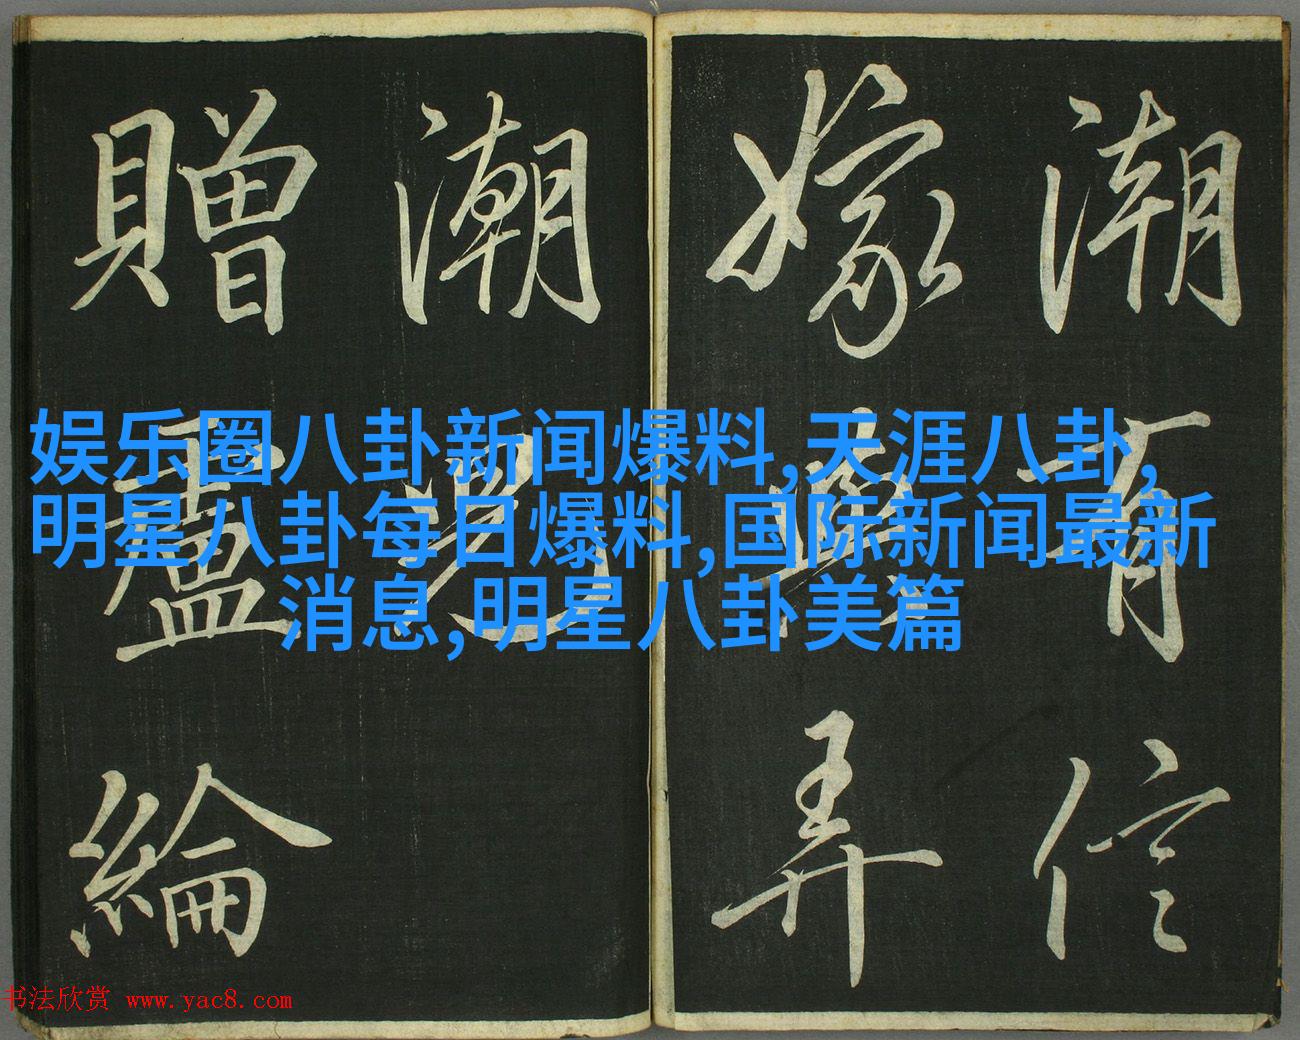 潮有信
嫁與弄
潮兒
贈盧綸
娱乐圈八卦新闻爆料,天涯八卦,
明星八卦每日爆料,国际新闻最新
消息,明星八卦美篇
书法欣赏 www.yac8.com